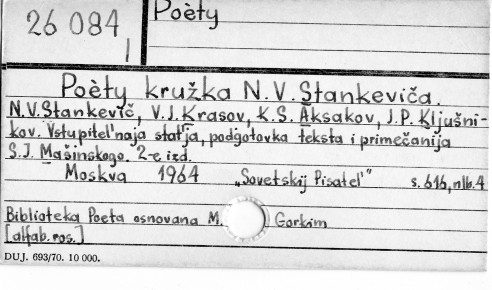 26 084
1
Poèty
Poèty kružka N.V. Stankeviča.
N.V. Stankevič, V.J. Krasov, K.S. Aksakov, J.P. Kljušni-
kov. Vstupitel'naja stat'ja, podgotovka teksta i primečanija
S.J. Mašinskogo. 2-e izd.
Moskva 1964 „Sovetskij Pisatel'” s. 616, nlb. 4
Biblioteka Poeta osnovana M. Gorkim
[alfab. ros.]
DUJ. 693/70. 10 000.